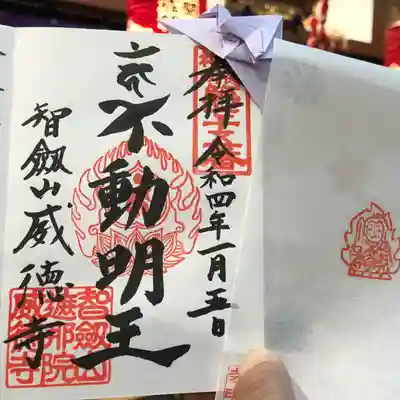 奉拝 令和四年一月五日
不動明王
智劔山威徳寺
智劔山
遮那院
威徳寺